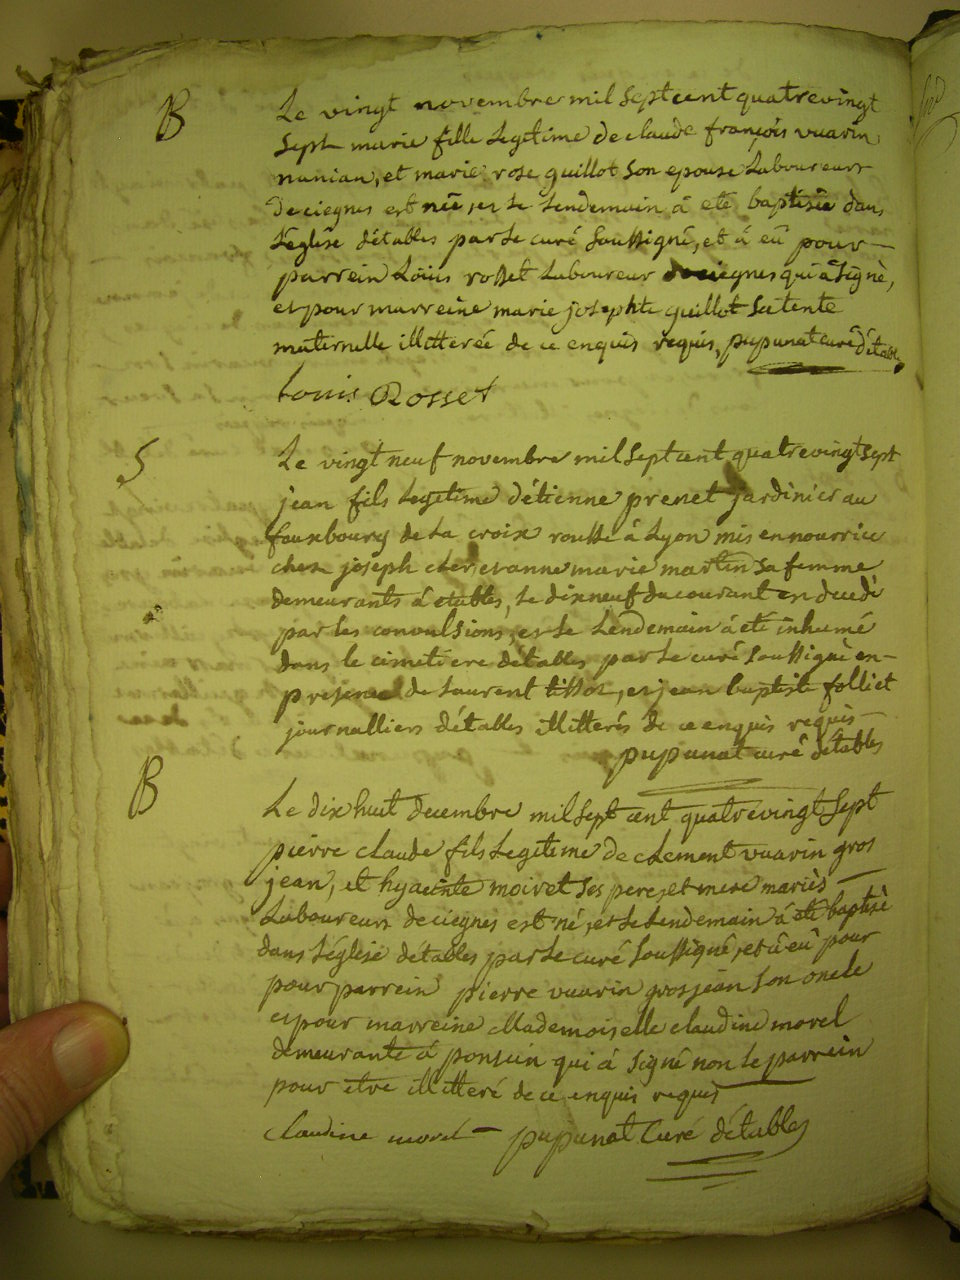 B
Le vingt novembre mil Sept cent quatre vingt
Sept marie fille Legitime de claude françois vuarin
nunian, et marie rose guillot Son epouse Laboureurs
de ciegnes est née, et le Lendemain à eté baptisée dans
L'église détables par Le curé Soussigné, et à eû pour
parrein Loüis rosset Laboureur de ciegnes qui à Signé,
et pour marreine marie josephte guillot Sa tente
maternelle illitterée de ce enquis requis, pupunat curé détables
Louis Rosset
S
Le vingt neuf novembre mil Sept cent quatre vingt Sept
jean fils Legitime d'étienne prenet jardinier au
fauxbourg de La croix rousse à Lyon mis en nourrice
chez joseph cler et anne marie martin Sa femme
demeurants à etables, Le dix neuf du courant en
par les convulsions, et Le Lendemain à eté inhumé
dans le cimetiere détables par Le curé Soussigné en
presence de Laurent tissot, et jean baptiste folliet
journalliers détables illitterés de ce enquis requis
pupunat curé détables
B
Le dix huit decembre mil Sept cent quatre vingt Sept
pierre claude fils Legitime de clement vuarin gros
jean, et hyacinte moiret Ses pere, et mere mariès
Laboureurs de ciegnes est né, et Le Lendemain à eté baptisé
dans L'église détables par Le curé Soussigné, et à eû pour
pour parrein pierre vuarin grosjean Son oncle
et pour marreine Mademoiselle claudine morel
demeurante à poncin qui à Signé non Le parrein
pour etre illitteré de ce enquis requis
claudine morel pupunat Curé détables